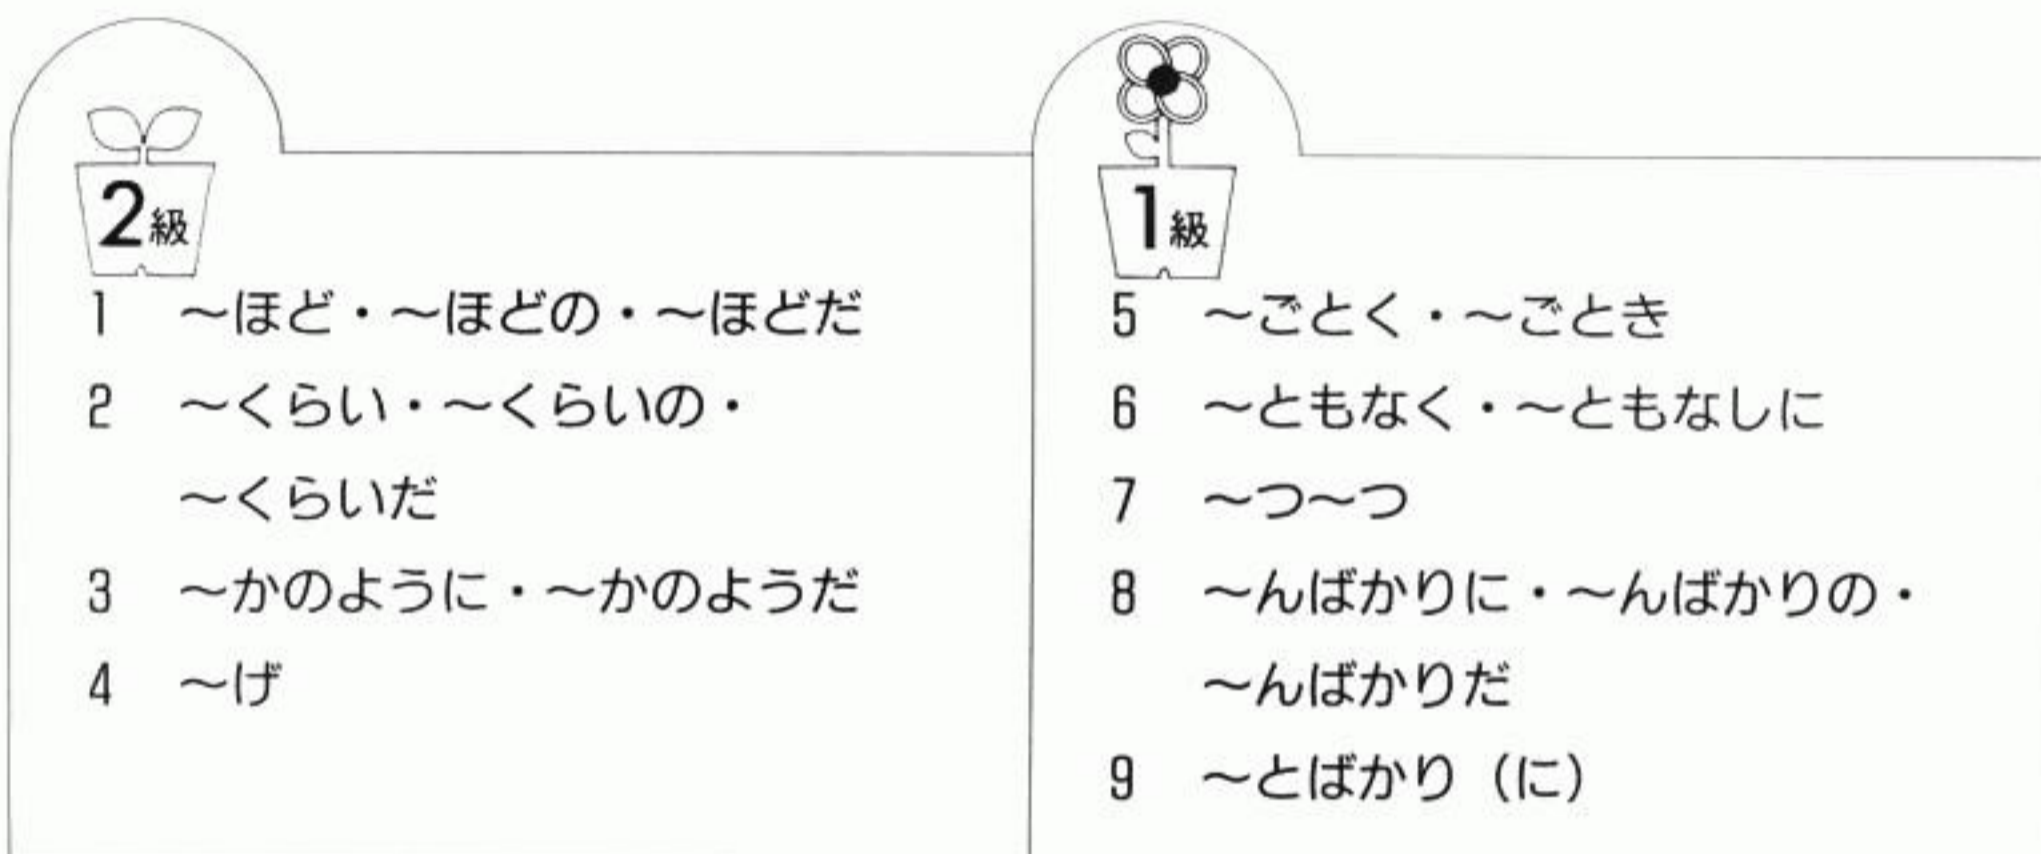 2級
1 ～ほど・～ほどの・～ほどだ
2 ～くらい・～くらいの・
～くらいだ
3 ～かのように・～かのようだ
4 ～げ
1級
5 ～ごとく・～ごとき
6 ～ともなく・～ともなしに
7 ～つ～つ
8 ～んばかりに・～んばかりの・
～んばかりだ
9 ～とばかり（に）